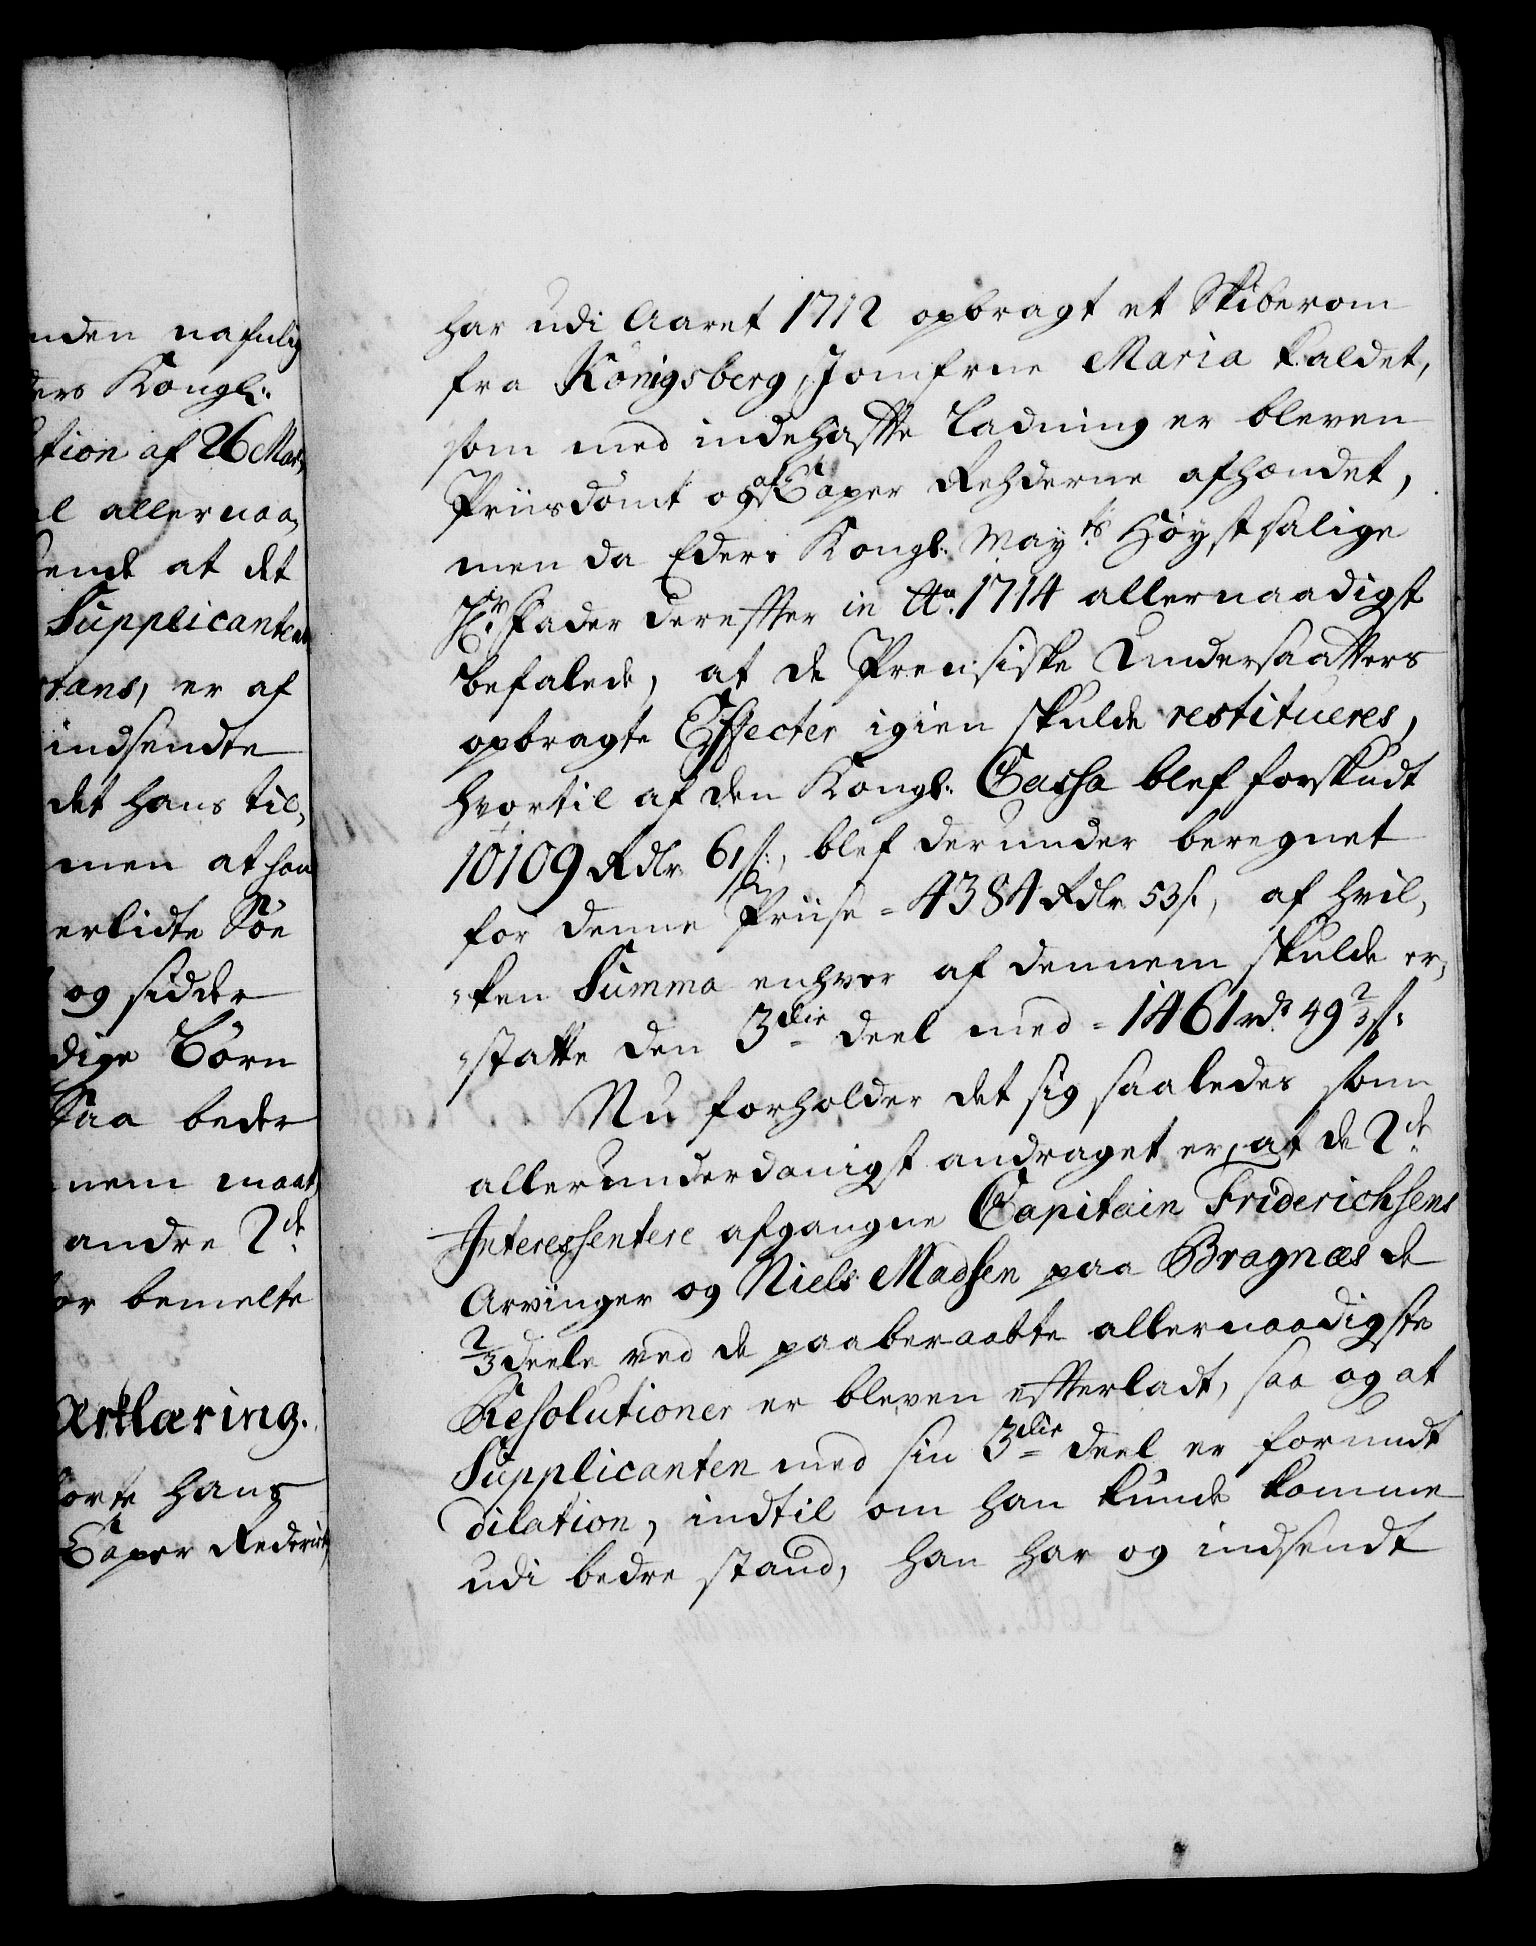 nden nafnlig
ders Kongl:
tion af 26 Mar,
el allernaa,
kendt at det
Supplicanten
rans, er af
indsendte
det hans til,
men at han
erlidte Søe
og sidder
dige Børn
Saa beder
nem maat,
andre 2de
or bemelte
Erklæring.
orte hans
Caper Rederiet,
har udi Aaret 1712 opbragt et Skiberom
fra Königsberg, Jomfrue Maria kaldet,
som med indehafte Ladning er bleven
Priisdömt og af Caper Rehderne afhændet,
men da Eders Kongl: Mayts Høystsalige
Hr. Fader derefter in Ao. 1714 allernaadigst
befalede, at de Preusiske Undersaatters
opbragte Effecter igien skulde restitueres,
hvortil af den Kongl: Cassa blef forskudt
10109 Rdlr 61 s:, blef derunder beregnet
for denne Priise = 4384 Rdlr 53 s:, af hvil,
"ken Summa enhver af dennem skulde er,
"statte den 3die deel med = 1461 rd. 49 2/3 s:
Nu forholder det sig saaledes som
allerunderdanigst andraget er, at de 2de
Interessentere afgangne Capitain Friderichsens
Arvinger og Niels Madsen paa Bragnæs de
2/3 deele ved de paaberaabte allernaadigste
Resolutioner er bleven efterladt, saa og at
Supplicanten med sin 3die deel er forundt
dilation, indtil om han kunde komme
udi bedre stand, han har og indsendt